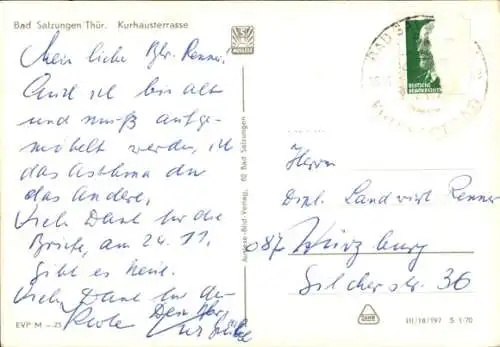 Bad Salzungen Thür. Kurhausterrasse
Mein liebe Renner.
Auch ich bin alt
und muß aufge-
möbelt werden, ich
das Asthma du
das Andere.
Vielen Dank für die
Briefe, am 24.11.
gibt es
Vielen Dank für die
Auslese-Bild-Verlag, 62 Bad Salzungen
EVP M –25
BAD
DEUTSCHE
Herrn
Dipl. Landwirt Renner
087 Würzburg
Silcherstr. 36
III/18/197 S 1/70